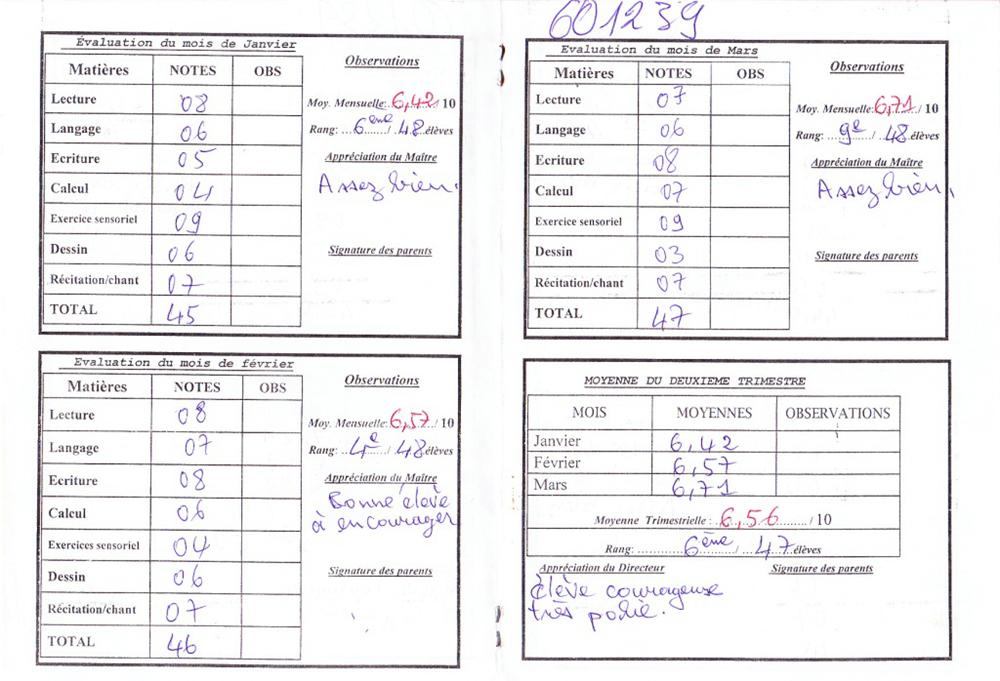 601239
Évaluation du mois de Janvier
Matières NOTES OBS
Lecture 08
Langage 06
Ecriture 05
Calcul 04
Exercice sensoriel 09
Dessin 06
Récitation/chant 07
TOTAL 45
Observations
Moy. Mensuelle:.6,42/ 10
Rang: ...6ème....../..48.élèves
Appréciation du Maître
Assez bien.
Signature des parents
Evaluation du mois de février
Matières NOTES OBS
Lecture 08
Langage 07
Ecriture 08
Calcul 06
Exercices sensoriel 04
Dessin 06
Récitation/chant 07
TOTAL 46
Observations
Moy. Mensuelle:6,57./ 10
Rang: ..4e...../ 48élèves
Appréciation du Maître
Bonne élève
à encourager
Signature des parents
Evaluation du mois de Mars
Matières NOTES OBS
Lecture 07
Langage 06
Ecriture 08
Calcul 07
Exercice sensoriel 09
Dessin 03
Récitation/chant 07
TOTAL 47
Observations
Moy. Mensuelle:6,71./ 10
Rang: ...9e..../ ..48.élèves
Appréciation du Maître
Assez bien.
Signature des parents
MOYENNE DU DEUXIEME TRIMESTRE
MOIS MOYENNES OBSERVATIONS
Janvier 6,42
Février 6,57
Mars 6,71
Moyenne Trimestrielle :.6,56......../ 10
Rang: ............6ème..../...47.élèves
Appréciation du Directeur Signature des parents
élève courageuse
très polie.